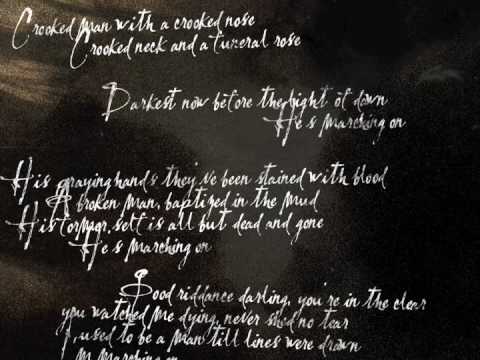 Crooked man with a crooked nose
Crooked neck and a funeral rose
Darkest now before the light of dawn
He s marching on
His praying hands they've been stained with blood
A broken man, baptized in the mud
His former self is all but dead and gone
He s marching on
Good riddance darling, you're in the clear
you watched me dying, never shed no tear
I used to be a man till lines were drawn
I'm marching on